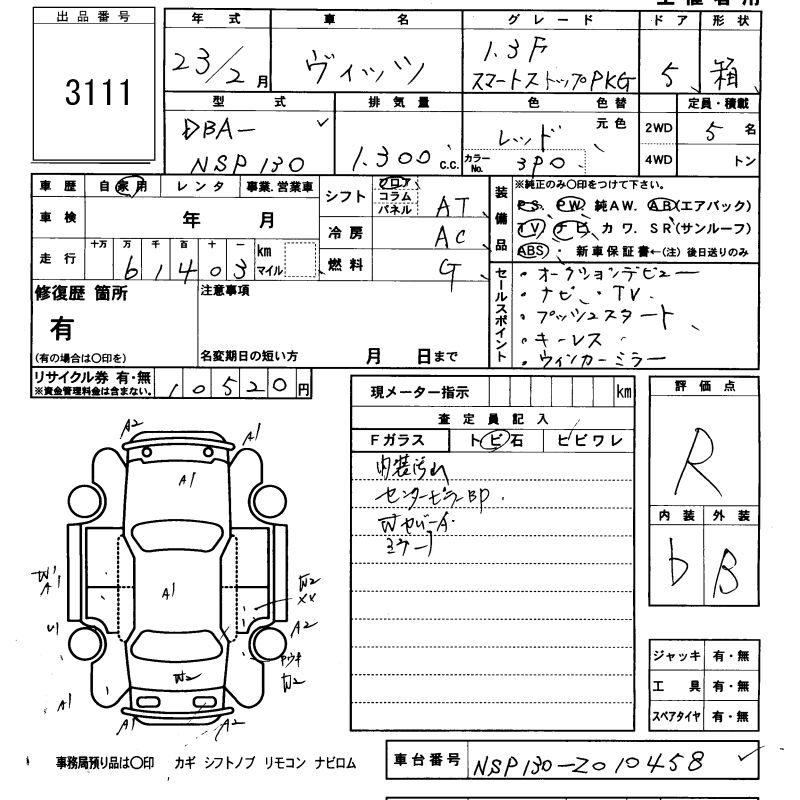 出品番号
3111
年式 車名 グレード ドア 形状
23/2月 ヴィッツ 1.3F 5 箱
スマートストップPKG
型式 排気量 色 色替 定員・積載
元色
DBA- レッド 2WD 5名
NSP130 1.300c.c. カラーNo. 3P0 4WD トン
車歴 自家用 レンタ 事業.営業車
車検 年 月
走行 十万 万 千 百 十 一 km マイル
61403
シフト フロア コラム パネル AT
冷房 AC
燃料 G
装備品
※純正のみ〇印をつけて下さい。
P.S. P.W. 純AW. A.B(エアバック)
T.V ナビ カワ. SR(サンルーフ)
ABS・新車保証書←(注)後日送りのみ
セールスポイント
・オークションデビュー
・ナビ・TV
・プッシュスタート
・キーレス
・ウィンカーミラー
修復歴 箇所
有
(有の場合は〇印を)
注意事項
名変期日の短い方 月 日まで
リサイクル券 有・無
※資金管理料金は含まない。
10520円
現メーター指示 km
査定員記入
Fガラス トビ石 ヒビワレ
内装汚れ
センターピラーBP.
評価点
R
内装 外装
b B
A2 A1
A1
W1 A1
A1
W2 XX
U1
A2
W2
W2
A1
A1 A2
ジャッキ 有・無
工具 有・無
スペアタイヤ 有・無
事務局預り品は〇印 カギ シフトノブ リモコン ナビロム
車台番号 NSP130-2010458